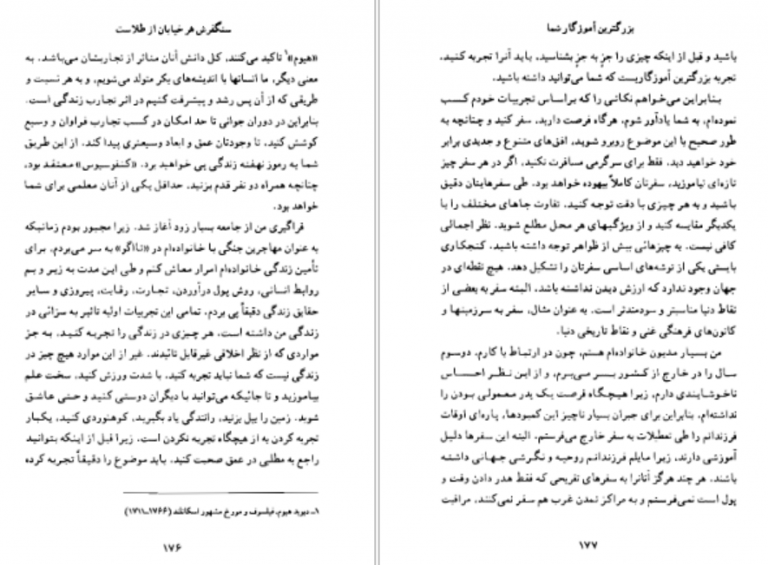 سنگفرش هر خیابان از طلاست
«هیوم»۱ تاکید می‌کنند، کل دانش آنان متاثر از تجاربشان می‌باشد. به
معنی دیگر، ما انسانها با اندیشه‌های بکر متولد می‌شویم، و به هر نسبت و
طریقی که از آن پس رشد و پیشرفت کنیم در اثر تجارب زندگی است.
بنابراین در دوران جوانی تا حد امکان در کسب تجارب فراوان و وسیع
کوشش کنید، تا وجودتان عمق و ابعاد وسیعتری پیدا کند. از این طریق
شما به رموز نهفته زندگی پی خواهید برد. «کنفوسیوس» معتقد بود،
چنانچه همراه دو نفر قدم بزنید، حداقل یکی از آنان معلمی برای شما
خواهد بود.
فراگیری من از جامعه بسیار زود آغاز شد. زیرا مجبور بودم زمانیکه
به عنوان مهاجرین جنگی با خانواده‌ام در «تااگو» به سر می‌بردم، برای
تأمین زندگی خانواده‌ام امرار معاش کنم و طی این مدت به زیر و بم
روابط انسانی، روش پول درآوردن، تجارت، رقابت، پیروزی و سایر
حقایق زندگی دقیقاً پی بردم. تمامی این تجربیات اولیه تاثیر به سزائی در
زندگی من داشته است. هر چیزی در زندگی را تجربه کنید. به جز
مواردی که از نظر اخلاقی غیرقابل تائیدند. غیر از این موارد هیچ چیز در
زندگی نیست که شما نباید تجربه کنید. با شدت ورزش کنید. سخت علم
بیاموزید و تا جائیکه می‌توانید با دیگران دوستی کنید و حتی عاشق
شوید. زمین را بیل بزنید، رانندگی یاد بگیرید، کوهنوردی کنید، یکبار
تجربه کردن به از هیچگاه تجربه نکردن است. زیرا قبل از اینکه بتوانید
راجع به مطلبی در عمق صحبت کنید. باید موضوع را دقیقاً تجربه کرده
۱ـ دیوید هیوم، فیلسوف و مورخ مشهور اسکاتلند (۱۷۶۶ـ۱۷۱۱)
۱۷۶
بزرگترین آموزگار شما
باشید و قبل از اینکه چیزی را جزء به جزء بشناسید، باید آنرا تجربه کنید.
تجربه بزرگترین آموزگاریست که شما می‌توانید داشته باشید.
بنابراین می‌خواهم نکاتی را که براساس تجربیات خودم کسب
نموده‌ام، به شما یادآور شوم. هرگاه فرصت دارید، سفر کنید و چنانچه به
طور صحیح با این موضوع روبرو شوید، افق‌های متنوع و جدیدی برابر
خود خواهید دید. فقط برای سرگرمی مسافرت نکنید. اگر در هر سفر چیز
تازه‌ای نیاموزید، سفرتان کاملاً بیهوده خواهد بود. طی سفرهایتان دقیق
باشید و به هر چیزی با دقت توجه کنید. تفاوت جاهای مختلف را با
یکدیگر مقایسه کنید و از ویژگیهای هر محل مطلع شوید. نظر اجمالی
کافی نیست. به چیزهائی بیش از ظواهر توجه داشته باشید. کنجکاوی
بایستی یکی از توشه‌های اساسی سفرتان را تشکیل دهد. هیچ نقطه‌ای در
جهان وجود ندارد که ارزش دیدن نداشته باشد. البته سفر به بعضی از
نقاط دنیا مناسبتر و سودمندتر است. به عنوان مثال، سفر به سرزمینها و
کانون‌های فرهنگی غنی و نقاط تاریخی دنیا.
من بسیار مدیون خانواده‌ام هستم، چون در ارتباط با کارم، دوسوم
سال را در خارج از کشور بسر می‌برم، و از این نظر احساس
ناخوشایندی دارم، زیرا هیچگاه فرصت یک پدر معمولی بودن را
نداشته‌ام. بنابراین برای جبران بسیار ناچیز این کمبودها، پاره‌ای اوقات
فرزندانم را طی تعطیلات به سفر خارج می‌فرستم. البته این سفرها دلیل
آموزشی دارند، زیرا مایلم فرزندانم روحیه و نگرشی جهانی داشته
باشند. هر چند هرگز آنانرا به سفرهای تفریحی که فقط هدر دادن وقت و
پول است نمی‌فرستم و به مراکز تمدن غرب هم سفر نمی‌کنند. مراقبت
۱۷۷